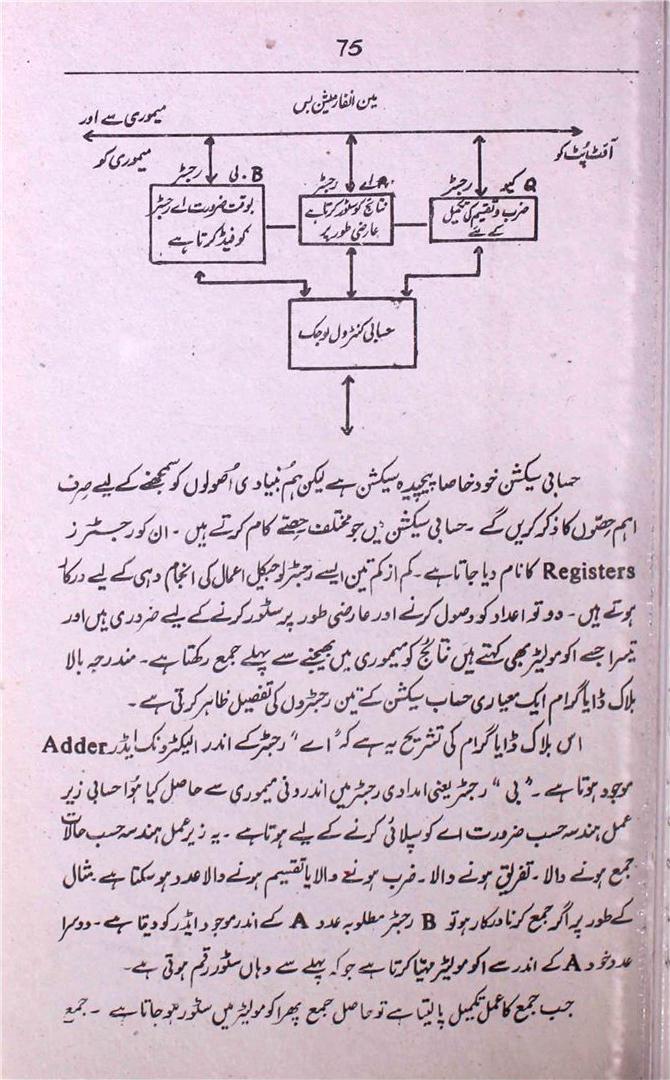 75
مین انفارمیشن بس
میموری سے اور
میموری کو
آؤٹ پُٹ کو
B۔ بی رجٹر
A۔ اے رجٹر
Q کیو رجٹر
بوقت ضرورت اے رجٹر
کو فیڈ کرتا ہے
نتائج کو سٹور کرتا ہے
عارضی طور پر
ضرب و تقیم کی تکمیل
کے لئے
حسابی کنٹرول لوجک
حسابی سیکشن خود خاصا پیچیدہ سیکشن ہے لیکن ہم بُنیادی اُصولوں کو سمجھنے کے لیے صِرف
اہم حِصّوں کا ذکر کریں گے ۔ حسابی سیکشن میں جو مختلف حِصّے کام کرتے ہیں ۔ ان کو رجسٹرز
Registers کا نام دیا جاتا ہے۔ کم از کم تین ایسے رجٹر لوجیکل اعمال کی انجام دہی کے لیے درکار
ہوتے ہیں ۔ دو تو اعداد کو وصول کرنے اور عارضی طور پر سٹور کرنے کے لیے ضروری ہیں اور
تیسرا جسے اکومولیٹر بھی کہتے ہیں نتائج کو میموری میں بھیجنے سے پہلے جمع رکھتا ہے۔ مندرجہ بالا
بلاک ڈایا گرام ایک معیاری حساب سیکشن کے تین رجٹروں کی تفصیل ظاہر کرتی ہے۔
اس بلاک ڈایا گرام کی تشریح یہ ہے کہ "اے" رجٹر کے اندر الیکٹرونک ایڈر Adder
موجود ہوتا ہے ۔ "بی" رجٹر یعنی امدادی رجٹر میں اندرونی میموری سے حاصل کیا ہُوا حسابی زیر
عمل ہندسہ حسب ضرورت اے کو سپلائی کرنے کے لیے ہوتا ہے ۔ یہ زیر عمل ہندسہ حسب حالات
جمع ہونے والا ۔ تفریق ہونے والا ۔ ضرب ہونے والا یا تقسیم ہونے والا عدد ہو سکتا ہے مثال
کے طور پر اگر جمع کرنا درکار ہو تو B رجٹر مطلوبہ عدد A کے اندر موجود ایڈر کو دیتا ہے ۔ دوسرا
عدد خود A کے اندر سے اکومولیٹر مہیّا کرتا ہے جو کہ پہلے سے وہاں سٹور رقم ہوتی ہے۔
جب جمع کا عمل تکمیل پا لیتا ہے تو حاصل جمع پھر اکومولیٹر میں سٹور ہو جاتا ہے ۔ جمع